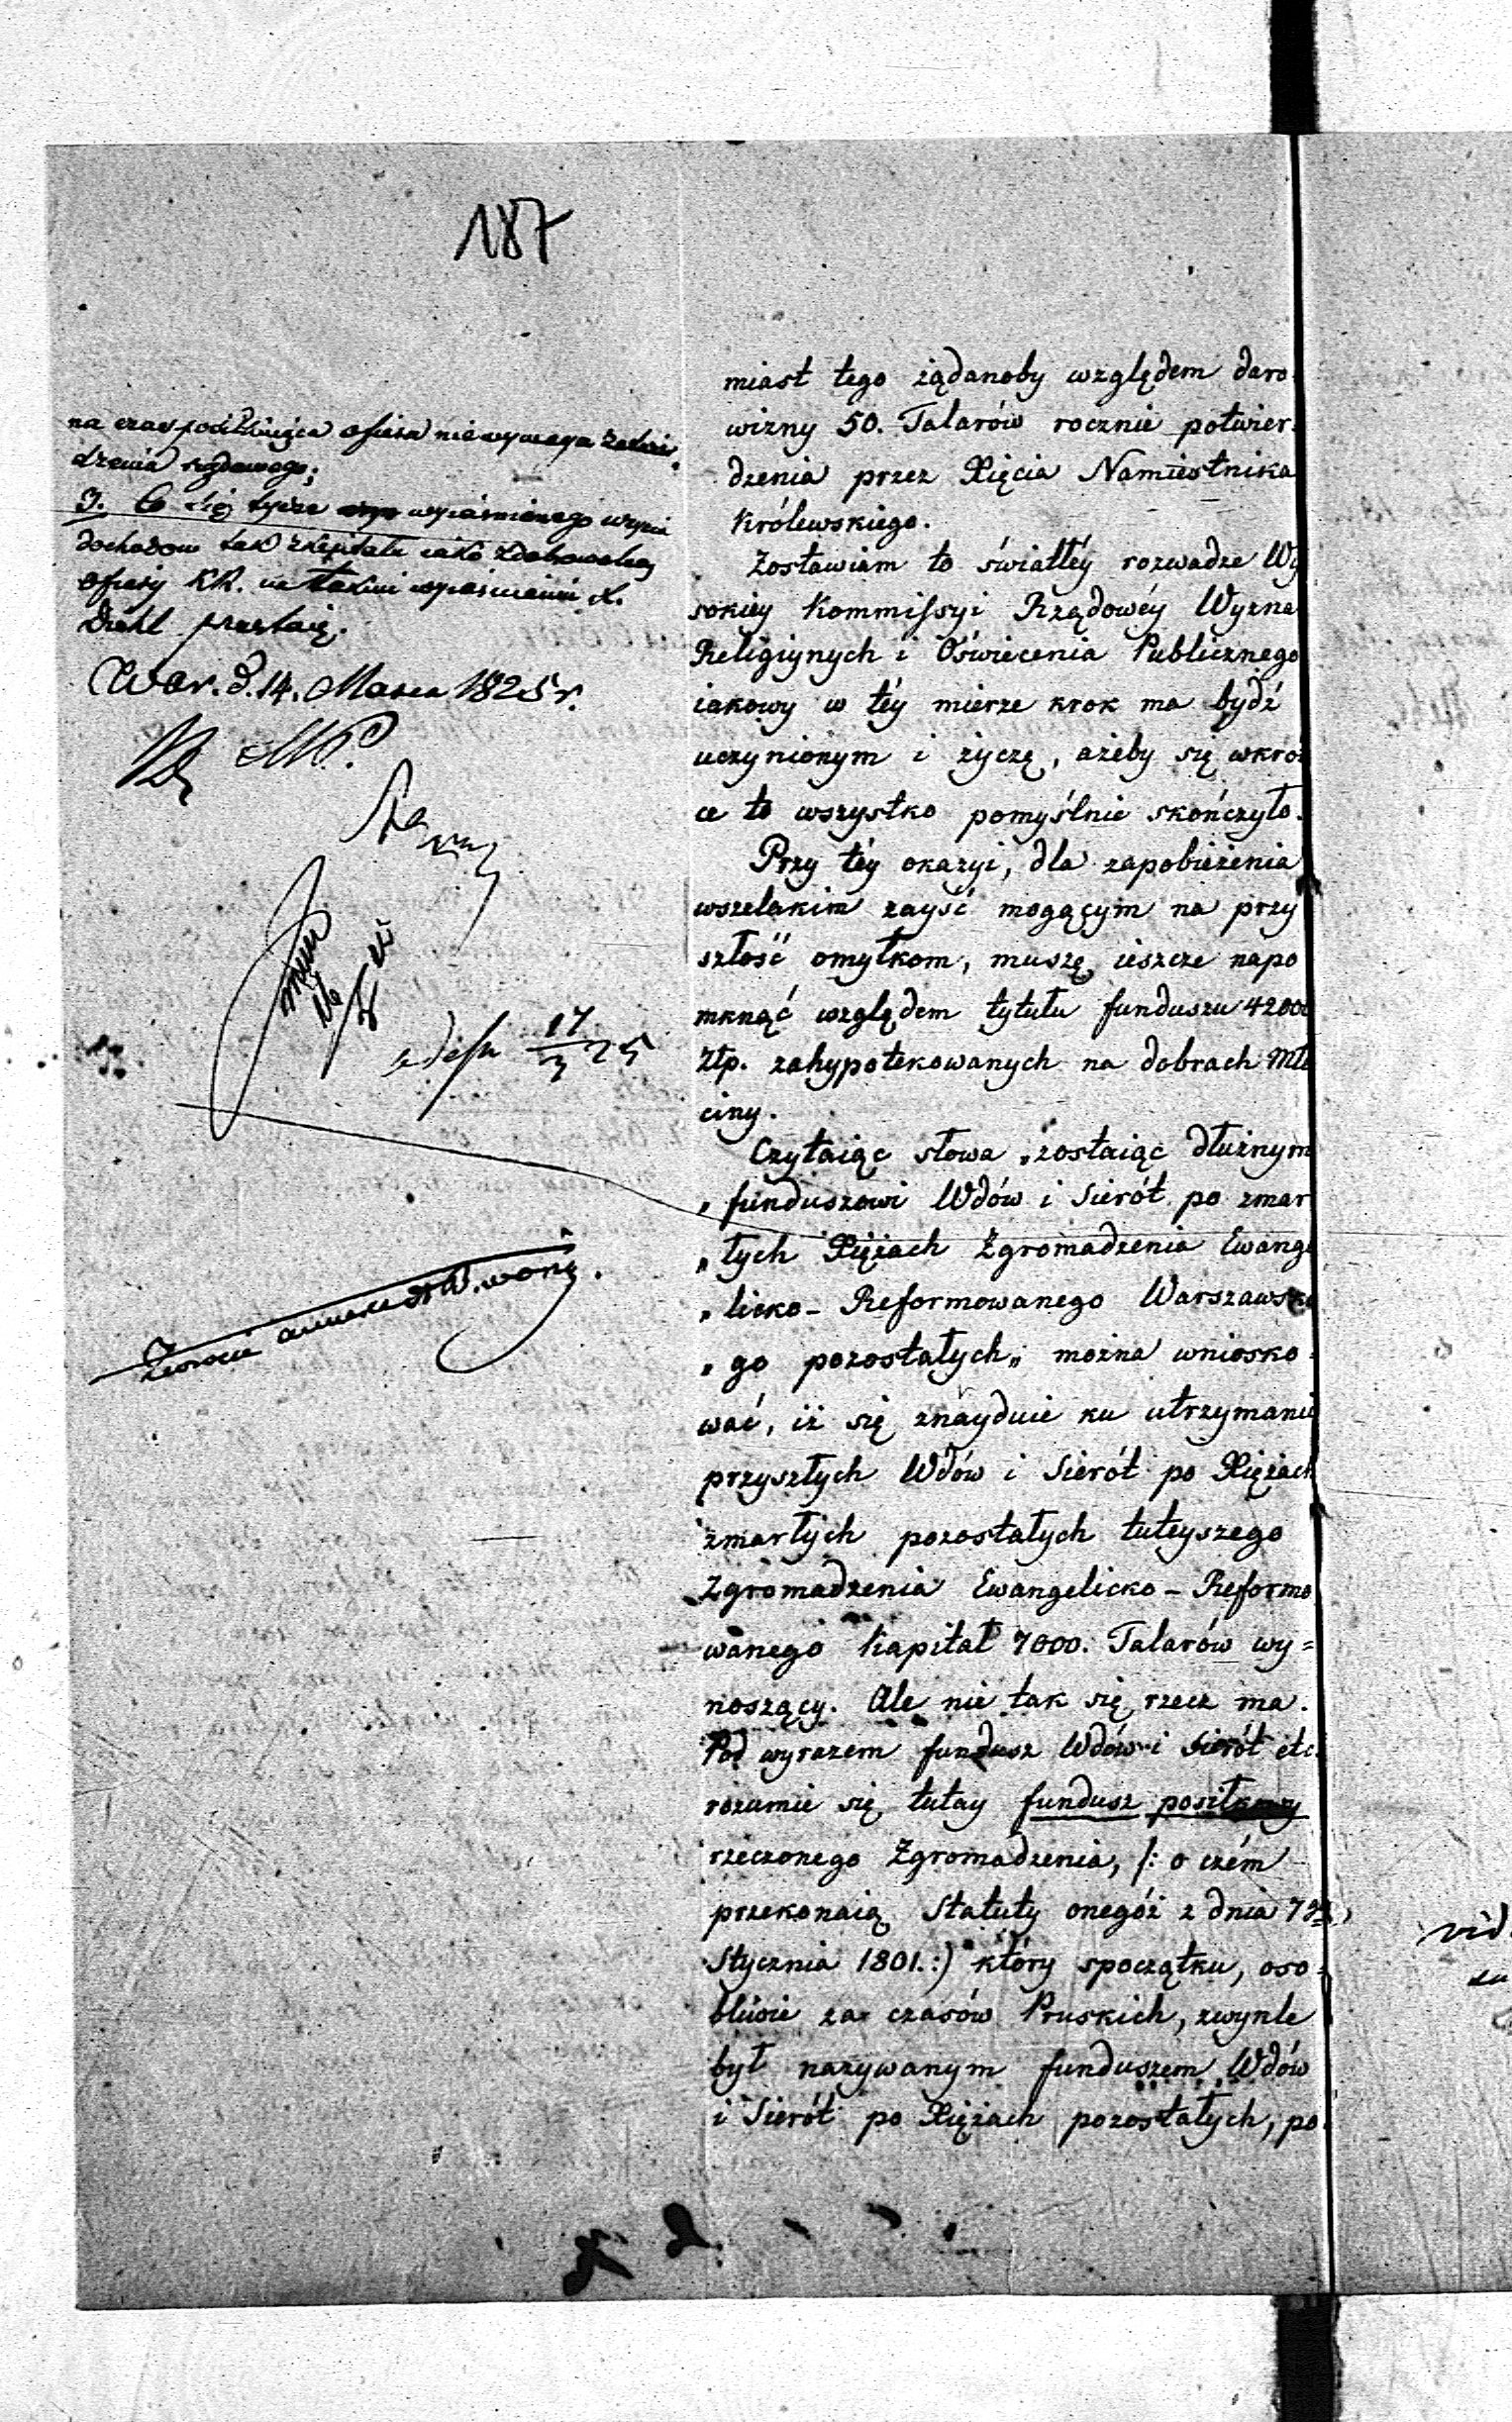 187
na czas ofiara nie wymaga zatwier-
dzenia rządowego;
3. Co się tycze wyjaśnionego
dochodów tak z kapitału iako z dobrowolney
ofiary KR. na X.
Diehl
War. d. 14. Marca 1825 r.
17
3 25
miast tego żądanoby względem daro-
wizny 50. Talarów rocznie potwier-
dzenia przez Xięcia Namiestnika
Królewskiego.
Zostawiam to światłéy rozwadze Wy
sokiéy Kommissyi Rządowéy Wyzna
Religiynych i Oświecenia Publicznego
iakowy w téy mierze krok ma bydź
uczynionym i życzę, ażeby się wkrót
ce to wszystko pomyślnie skończyło.
Przy téy okazyi, dla zapobieżenia
wszelakim zayść mogącym na przy
szłość omyłkom, muszę ieszcze napo
mknąć względem tytułu funduszu 42000
Złp. zahypotekowanych na dobrach Mło
ciny.
Czytaiąc słowa „zostaiąc dłużnym
„funduszowi Wdów i Sierót po zmar
„łych Xiężach Zgromadzenia Ewange
„licko-Reformowanego Warszawskie
„go pozostałych„ można wniosko-
wać, iż się znayduie ku utrzymaniu
przyszłych Wdów i Sierót po Xiężach
zmarłych pozostałych tuteyszego
Zgromadzenia Ewangelicko-Reformo
wanego kapitał 7000. Talarów wy=
noszący. Ale nie tak się rzecz ma.
Pod wyrazem fundusz Wdów i Sierót etc.
rozumie się tutay fundusz posiłkowy
rzeczonego Zgromadzenia, /: o czém
przekonaią Statuty onegóż z dnia 7go
Stycznia 1801.:) który spoczątku, oso-
bliwie za czasów Pruskich, zwykle
był nazywanym funduszem Wdów
i Sierót po Xiężach pozostałych, po-
vid.